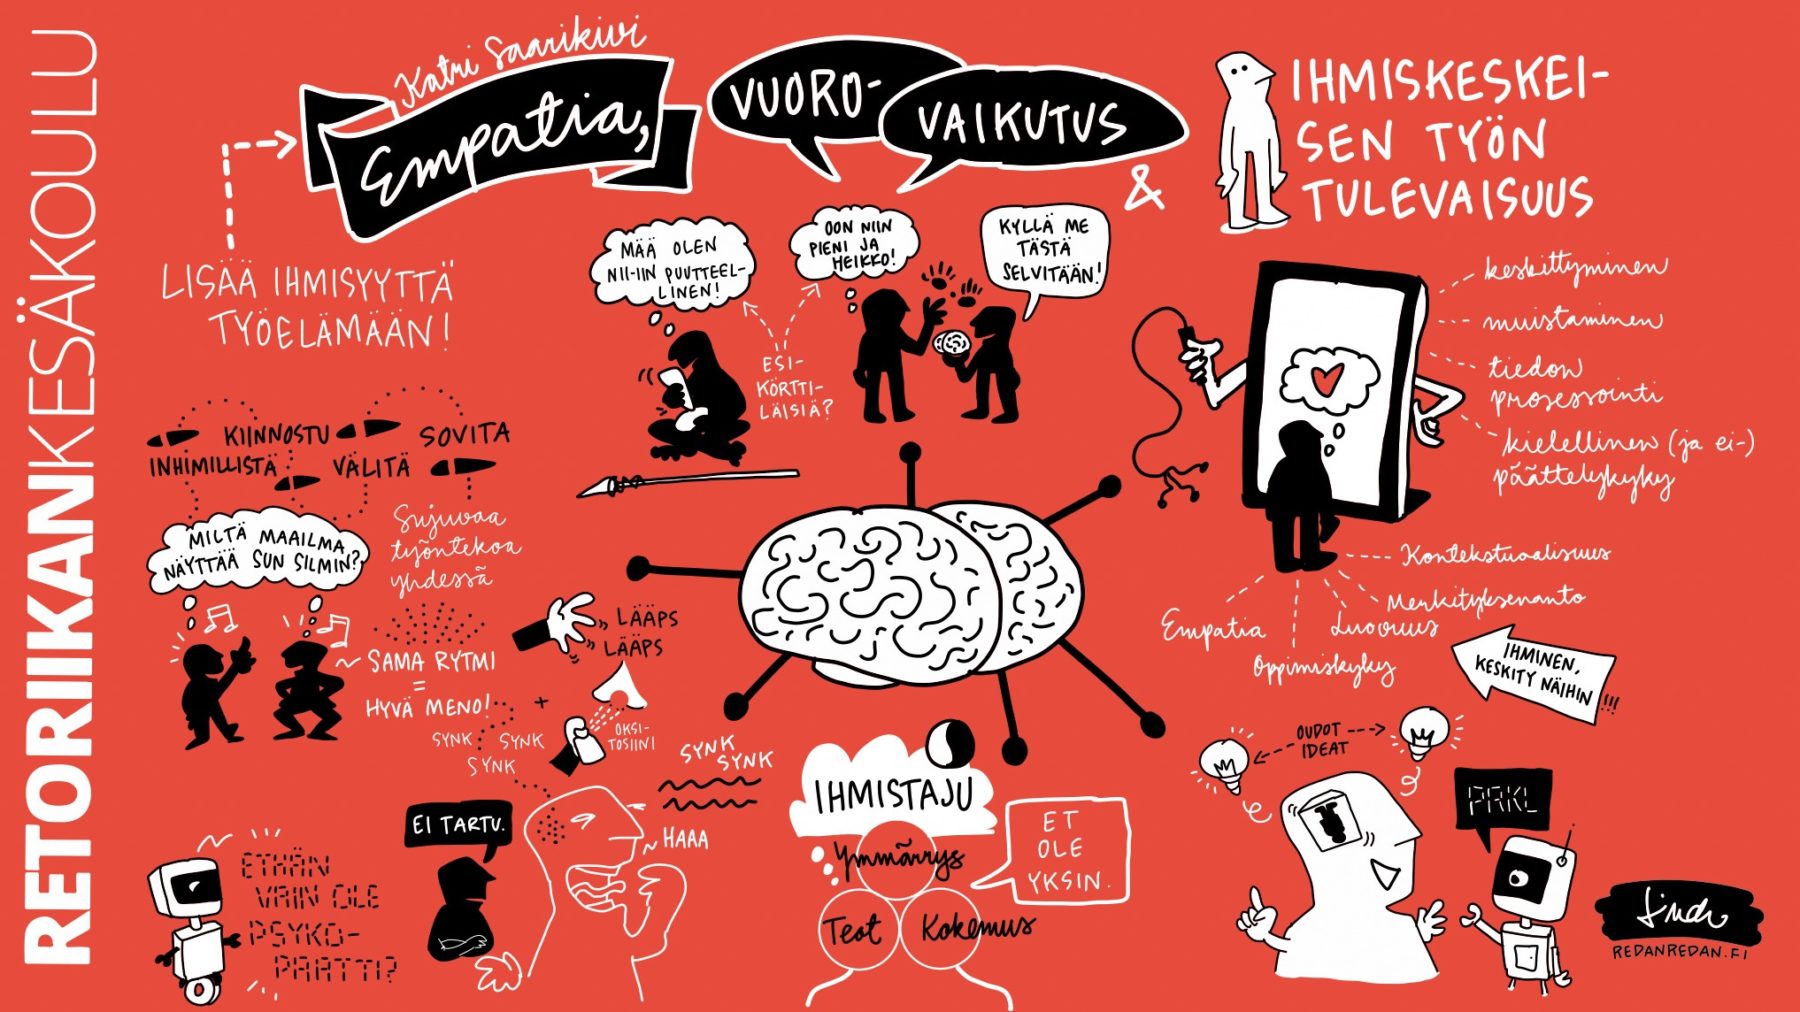 RETORIIKANKESÄKOULU
Katri Saarikivi
Empatia,
VUORO-
VAIKUTUS
&
IHMISKESKEI-
SEN TYÖN
TULEVAISUUS
LISÄÄ IHMISYYTTÄ
TYÖELÄMÄÄN!
MÄÄ OLEN
NII-IIN PUUTTEEL-
LINEN!
OON NIIN
PIENI JA
HEIKKO!
KYLLÄ ME
TÄSTÄ
SELVITÄÄN!
ESI-
KÖRTTI-
LÄISIÄ?
keskittyminen
muistaminen
tiedon
prosessointi
kielellinen (ja ei-)
päättelykyky
Kontekstuaalisuus
Merkityksenanto
Luovuus
Oppimiskyky
Empatia
IHMINEN,
KESKITY NÄIHIN
!!!
KIINNOSTU
SOVITA
INHIMILLISTÄ
VÄLITÄ
Sujuvaa
työntekoa
yhdessä
MILTÄ MAAILMA
NÄYTTÄÄ SUN SILMIN?
SAMA RYTMI
=
HYVÄ MENO!
SYNK
SYNK
SYNK
LÄÄPS
LÄÄPS
+
OKSI-
TOSIINI
SYNK
SYNK
HAAA
EI TARTU.
ETHÄN
VAIN OLE
PSYKO-
PAATTI?
IHMISTAJU
Ymmärrys
Teot
Kokemus
ET
OLE
YKSIN.
OUDOT
IDEAT
PRKL
Linda
REDANREDAN.FI